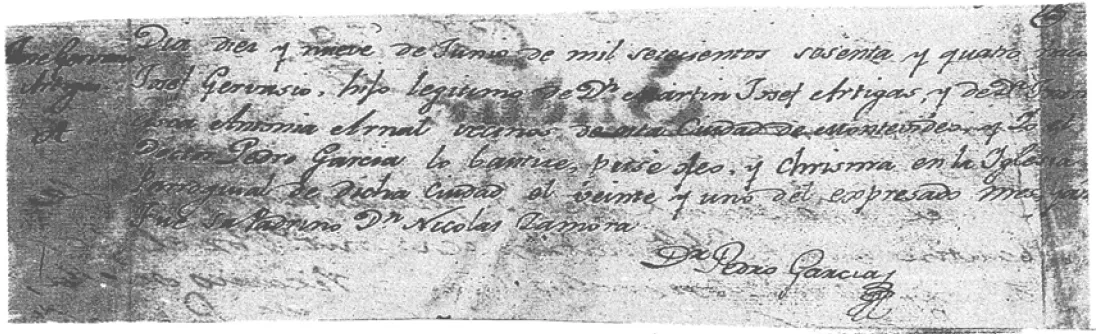 Jose Gervasio
Artigas
Dia diez y nueve de Junio de mil setecientos sesenta y quatro nacio
Josef Gervasio, hijo legitimo de Dn. Martin Josef Artigas, y de Da. Fran
cisca Antonia Arnal vecinos de esta Ciudad de Montevideo. y Yo el
Doctor Pedro Garcia lo bautice, puse oleo, y Chrisma en la Iglesia
Parroquial de dicha Ciudad el veinte y uno del expresado mes, y año
Fue su Padrino Dn. Nicolas Zamora
Dr. Pedro Garcia